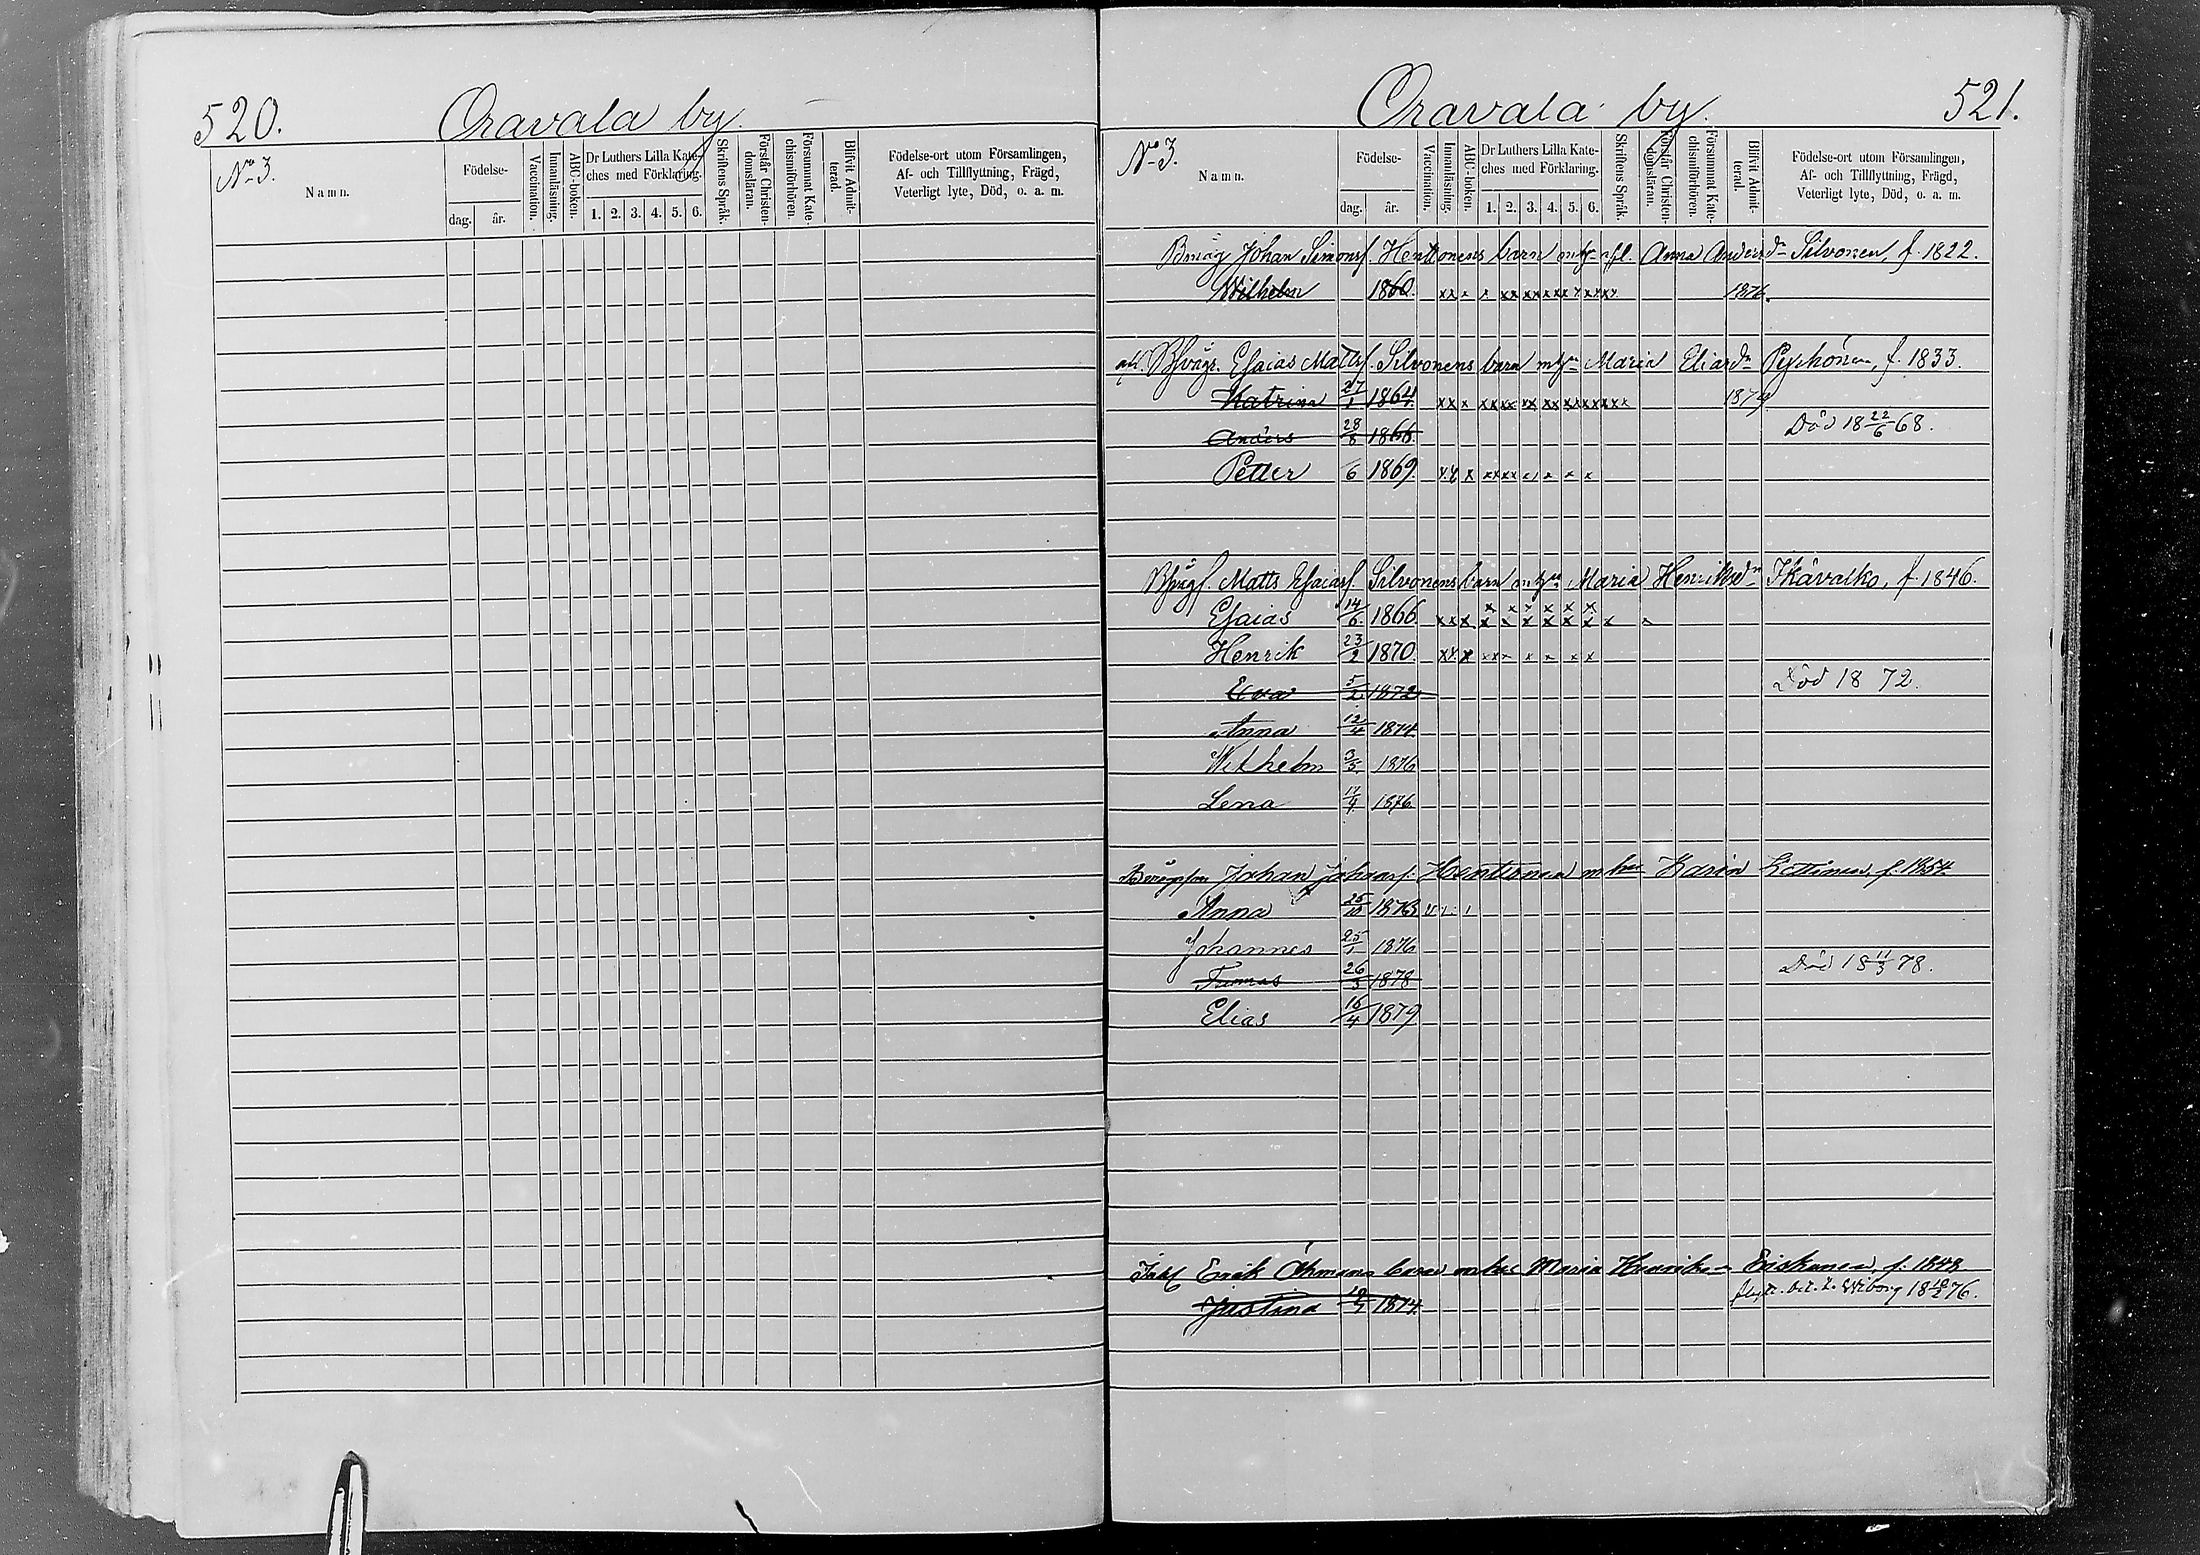 520.
Oravala by.
N:o 3.
Namn.
Födelse-
dag.
år.
Vaccination.
Innanläsning.
ABC-boken.
Dr Luthers Lilla Kate-
ches med Förklaring.
1. 2. 3. 4. 5. 6.
Skriftens Språk.
Förstår Christen-
domsläran.
Försummat Kate-
chismiförhören.
Blifvit Admit-
terad.
Födelse-ort utom Församlingen,
Af- och Tillflyttning, Frägd,
Veterligt lyte, Död, o. a. m.
521.
Oravala by.
N:o 3.
Namn.
Födelse-
dag.
år.
Vaccination.
Innanläsning.
ABC-boken.
Dr Luthers Lilla Kate-
ches med Förklaring.
1. 2. 3. 4. 5. 6.
Skriftens Språk.
Förstår Christen-
domsläran.
Försummat Kate-
chismiförhören.
Blifvit Admit-
terad.
Födelse-ort utom Församlingen,
Af- och Tillflyttning, Frägd,
Veterligt lyte, Död, o. a. m.
Johan Simonsf. Henttonens barn Anna Andersdr Silvonen, f. 1822.
Wilhelm 1860. 1876.
Esaias Mattsf. Silvonens barn Maria Eliasdr Pyyhönen, f. 1833.
Katrina 27/1 1864. 1879
Anders 28/8 1866. Död 18 22/6 68.
Petter 6 1869.
Matts Esaiasf. Silvonens barn Maria Henriksdr Ikävalko, f. 1846.
Esaias 14/6 1866.
Henrik 23/2 1870.
Eva 5/2 1872. Död 18 72.
Anna 12/4 1874.
Wilhelm 3/3 1876
Lena 17/4 1876
Johan Johansf. Henttonen Karin f. 1854.
Anna 25/10 1873
Johannes 25/1 1876
Tomas 26/3 1878 Död 18 11/3 78.
Elias 16/4 1879
Erik Åhmans barn Maria f. 1848
Justina 1874. Wiborg 18 10/2 76.